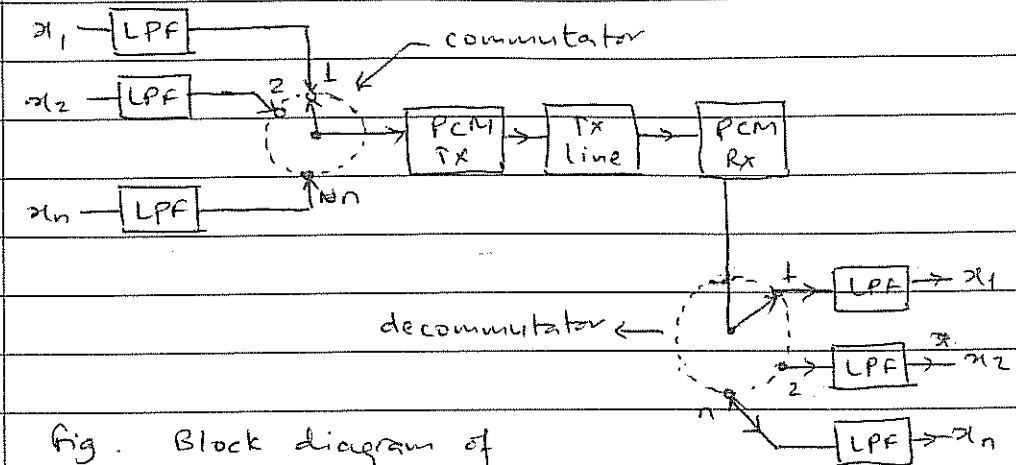 x1 LPF
commutator
1
2
x2 LPF
PCM TX
Tx line
PCM Rx
xn LPF
n
1
LPF x1
decommutator
2
LPF x2
n
LPF xn
fig. Block diagram of